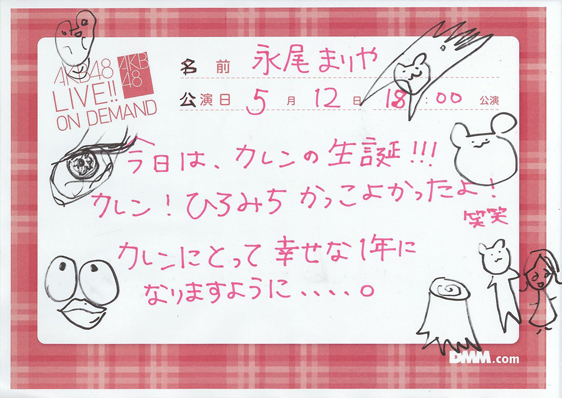 AKB48
LIVE!!
ON DEMAND
AKB
48
名前 永尾まりや
公演日 5月12日 18:00 公演
今日は、カレンの生誕!!!
カレン！ひろみち かっこよかったよ！
笑笑
カレンにとって幸せな1年に
なりますように、、、、。
DMM.com